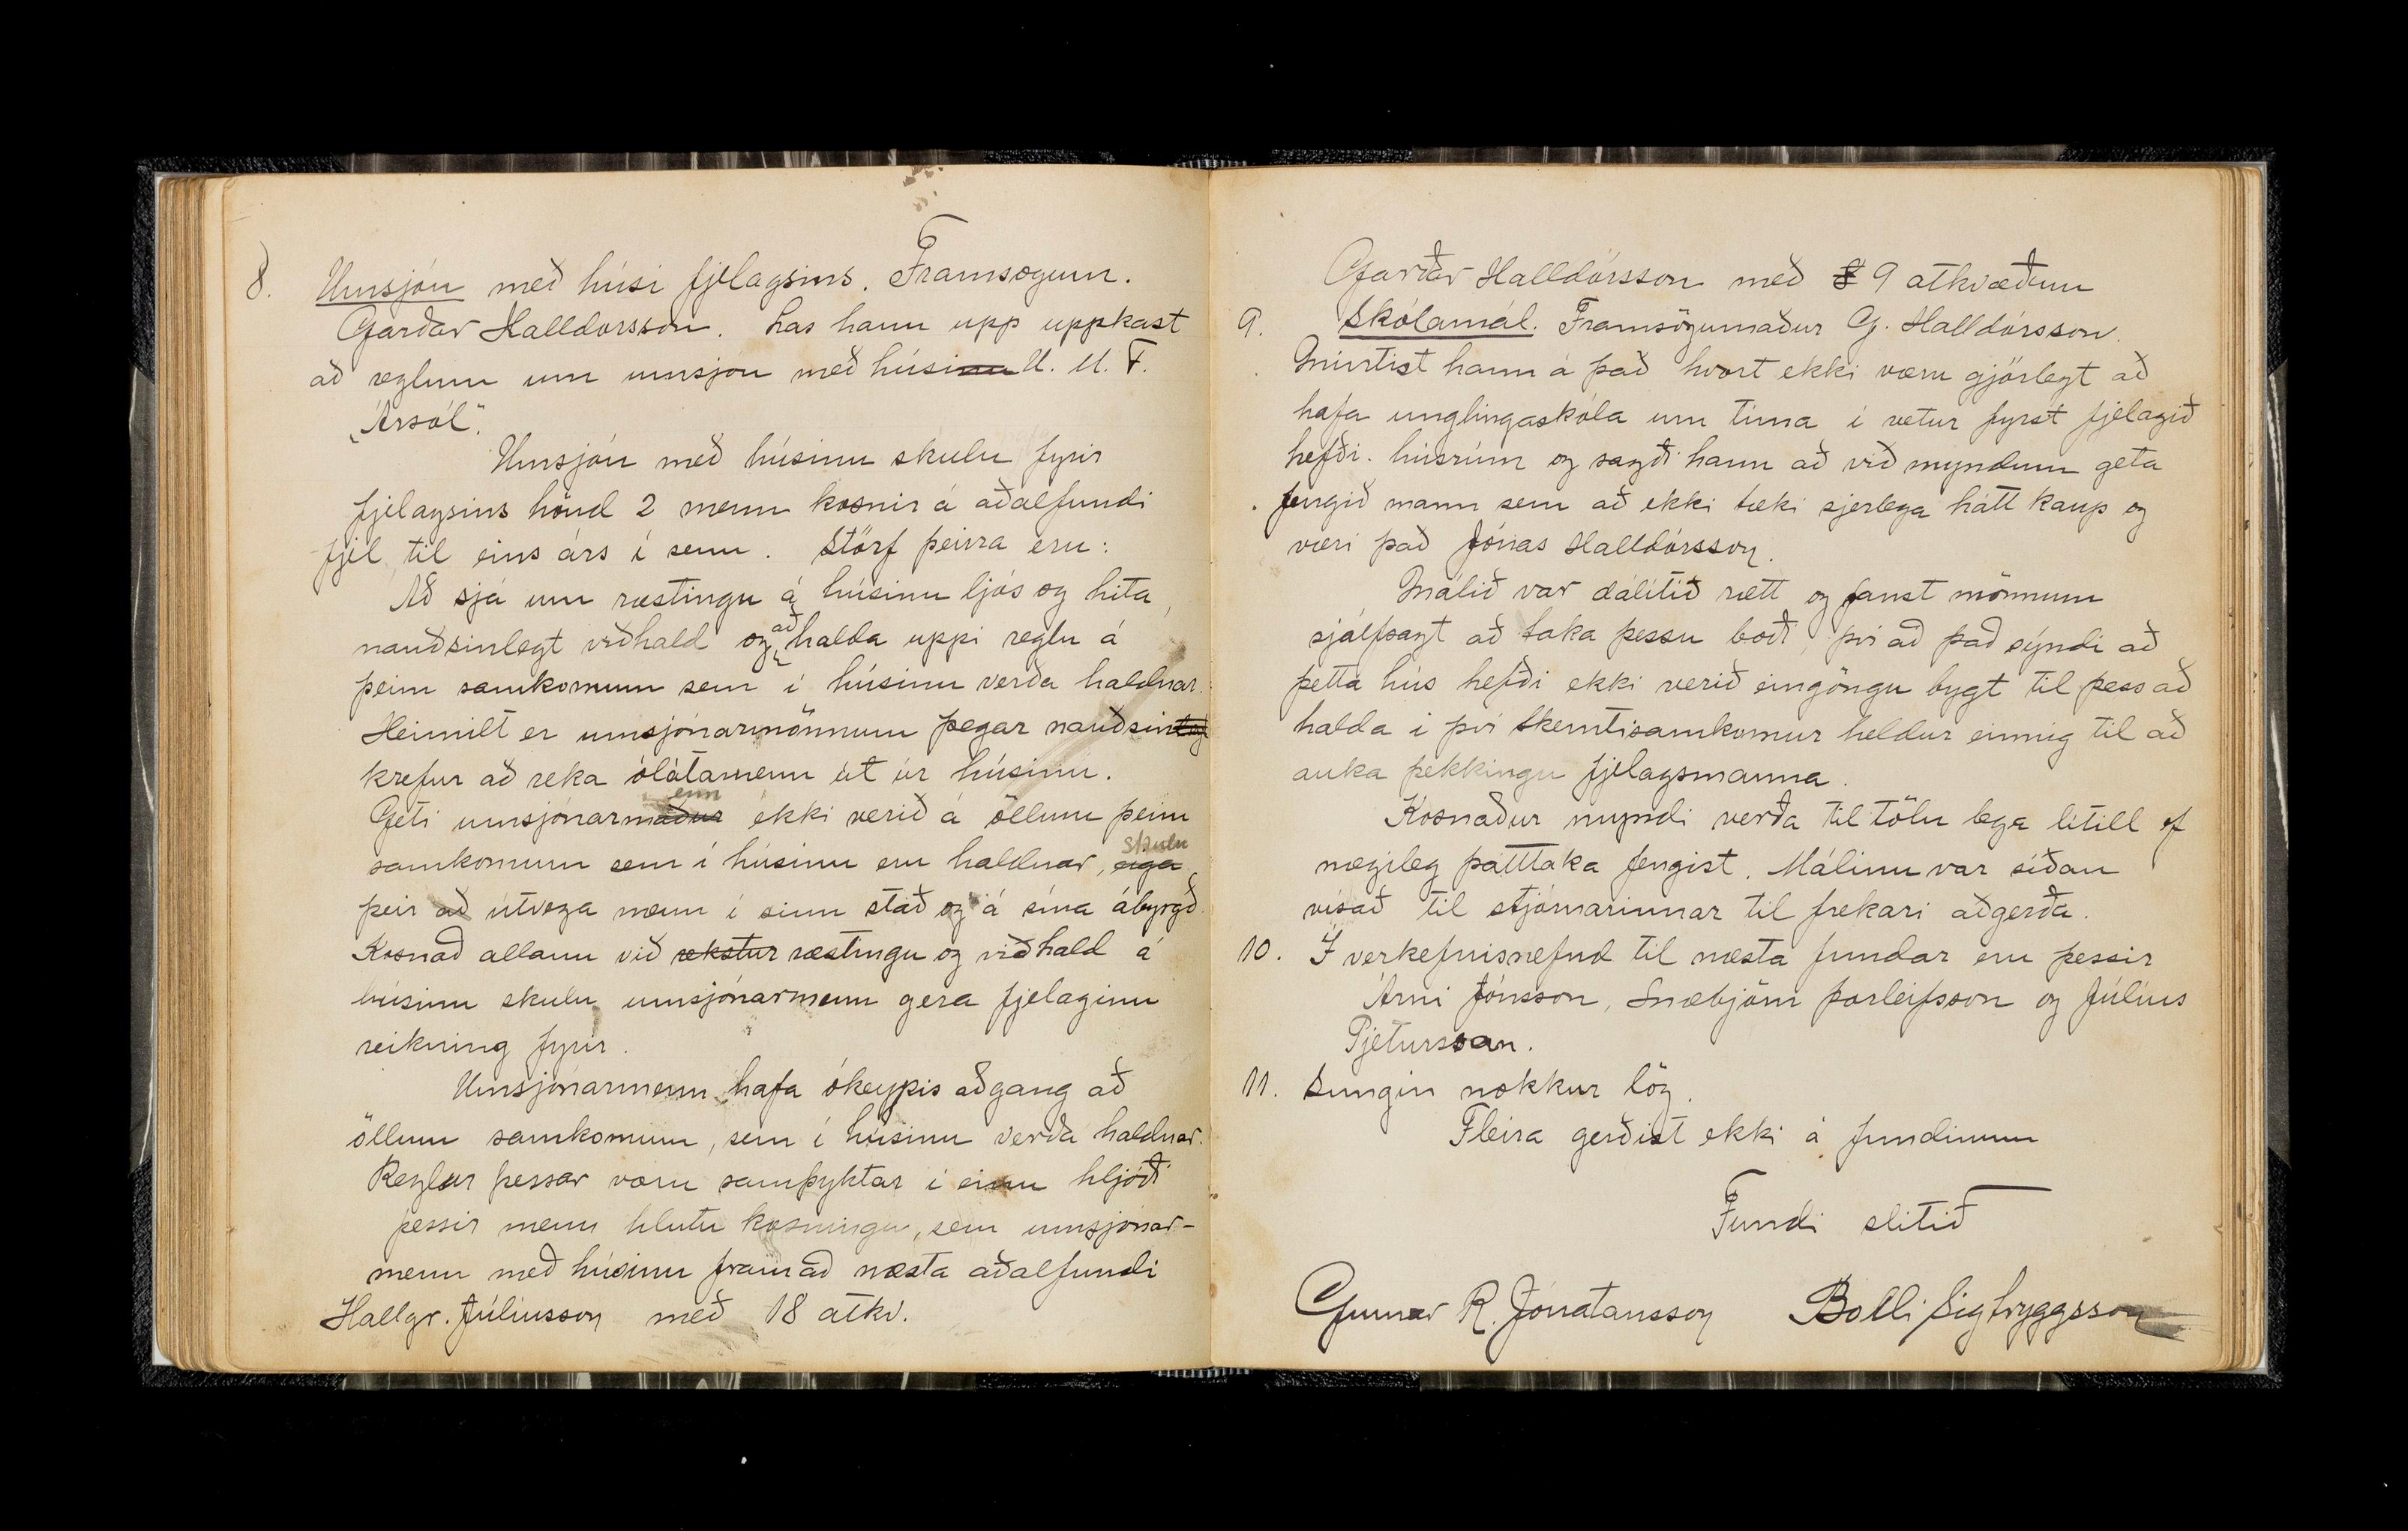 8. Umsjón með húsi fjelagsins. Framsögum.
Garðar Halldorsson. Las hann upp uppkast
að reglum um umsjón með húsinu U. M. F.
„Ársól".
Umsjón með húsinu skulu fyrir
fjelagsins hönd 2 menn kosnir á aðalfundi
fjel, til eins árs í senn. Störf þeirra eru:
Að sjá um ræstingu á húsinu ljós og hita,
nauðsinlegt viðhald og að halda uppi reglu á
þeim samkomum sem í húsinu verða haldnar.
Heimilt er umsjónarmönnum þegar nauðsin
krefur að reka ólátamenn út úr húsinu.
Geti umsjónarmaður enn ekki verið á öllum þeim
samkomum sem í húsinu eru haldnar, eiga skulu
þeir að útvega menn í sinn stað og á sína ábyrgð.
Kosnað allann við rekstur ræstingu og viðhald á
húsinu skulu umsjónarmenn gera fjelaginu
reikning fyrir.
Umsjónarmenn hafa ókeypis aðgang að
öllum samkomum, sem í húsinu verða haldnar.
Reglur þessar voru samþyktar í einu hljóði
þessir menn hlutu kosningu, sem umsjónar-
menn með húsinu fram að næsta aðalfundi
Hallgr. Júlíusson með 18 atkv.
Garðar Halldórsson með 8 9 atkvæðum
9. Skólamál. Framsögumaður G. Halldórsson.
Mintist hann á það hvort ekki væru gjörlegt að
hafa unglingaskóla um tíma í vetur fyrst fjelagið
hefði húsrúm og sagði hann að við myndum geta
fengið mann sem að ekki tæki sjerlega hátt kaup og
væri það Jónas Halldórsson.
Málið var dálítið rætt og fanst mönnum
sjálfsagt að taka þessu boði, því að það sýndi að
þetta hús hefði ekki verið eingöngu bygt til þess að
halda í því skemtisamkomur heldur einnig til að
auka þekkingu fjelagsmanna.
Kosnaður myndi verða til tölu lega lítill ef
nægileg þátttaka fengist. Málinu var síðan
vísað til stjórnarinnar til frekari aðgerða.
10. Í verkefnisnefnd til næsta fundar eru þessir
Árni Jónsson, Snæbjörn Þorleifsson og Júlíus
Pjetursson.
11. Sungin nokkur lög.
Fleira gerðist ekki á fundinum
Fundi slitið
Gunnar R. Jónatansson Bolli Sigtryggsson